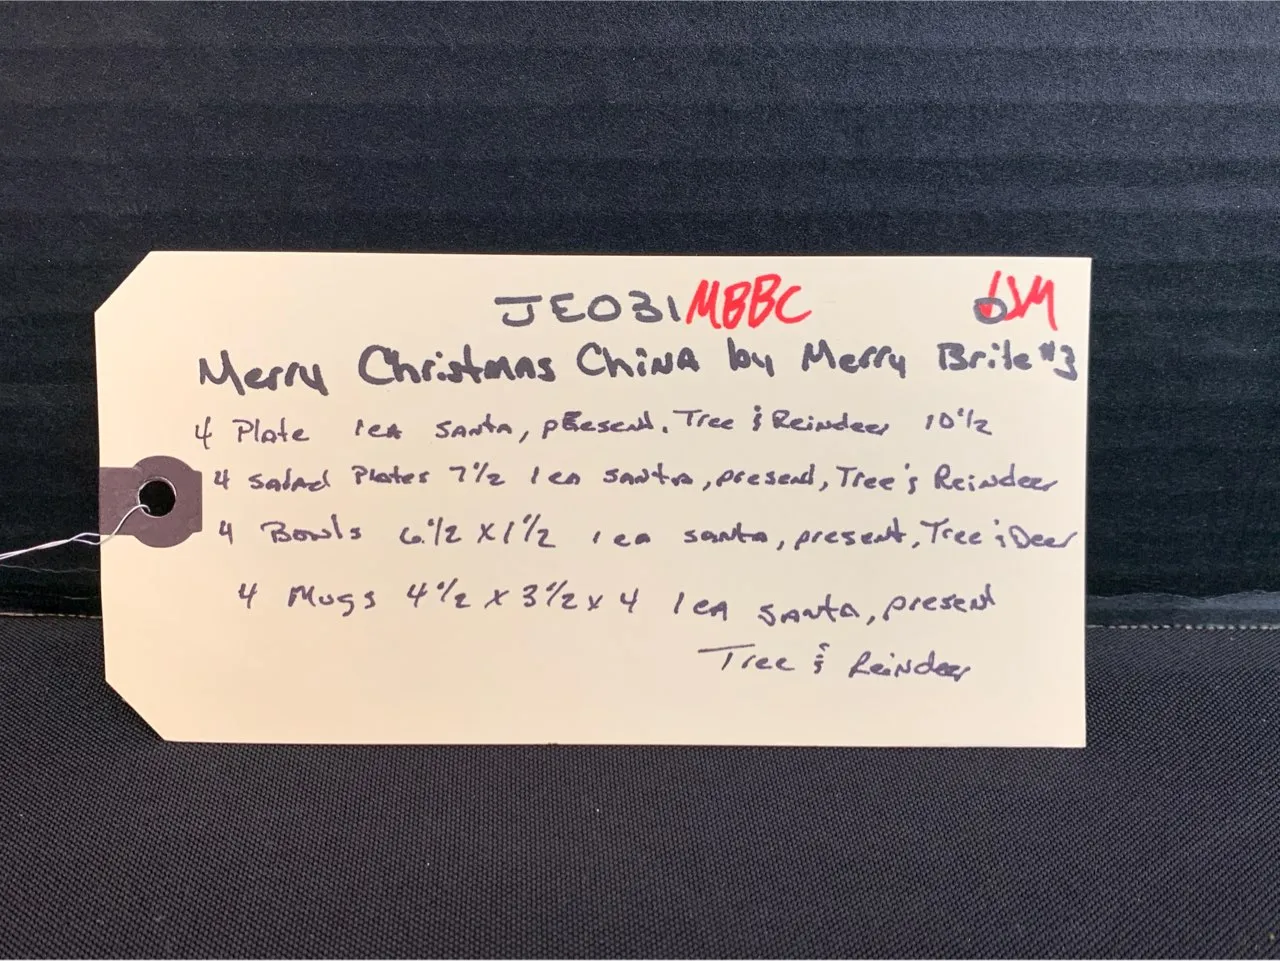 JE031 MBBC
Merry Christmas China by Merry Brite #3
4 Plate 1ea santa, present, Tree & Reindeer 10 1/2
4 salad Plates 7 1/2 1 ea santa, present, Tree & Reindeer
4 Bowls 6 1/2 x 1 1/2 1 ea santa, present, Tree & Deer
4 Mugs 4 1/2 x 3 1/2 x 4 1 ea santa, present
Tree & Reindeer